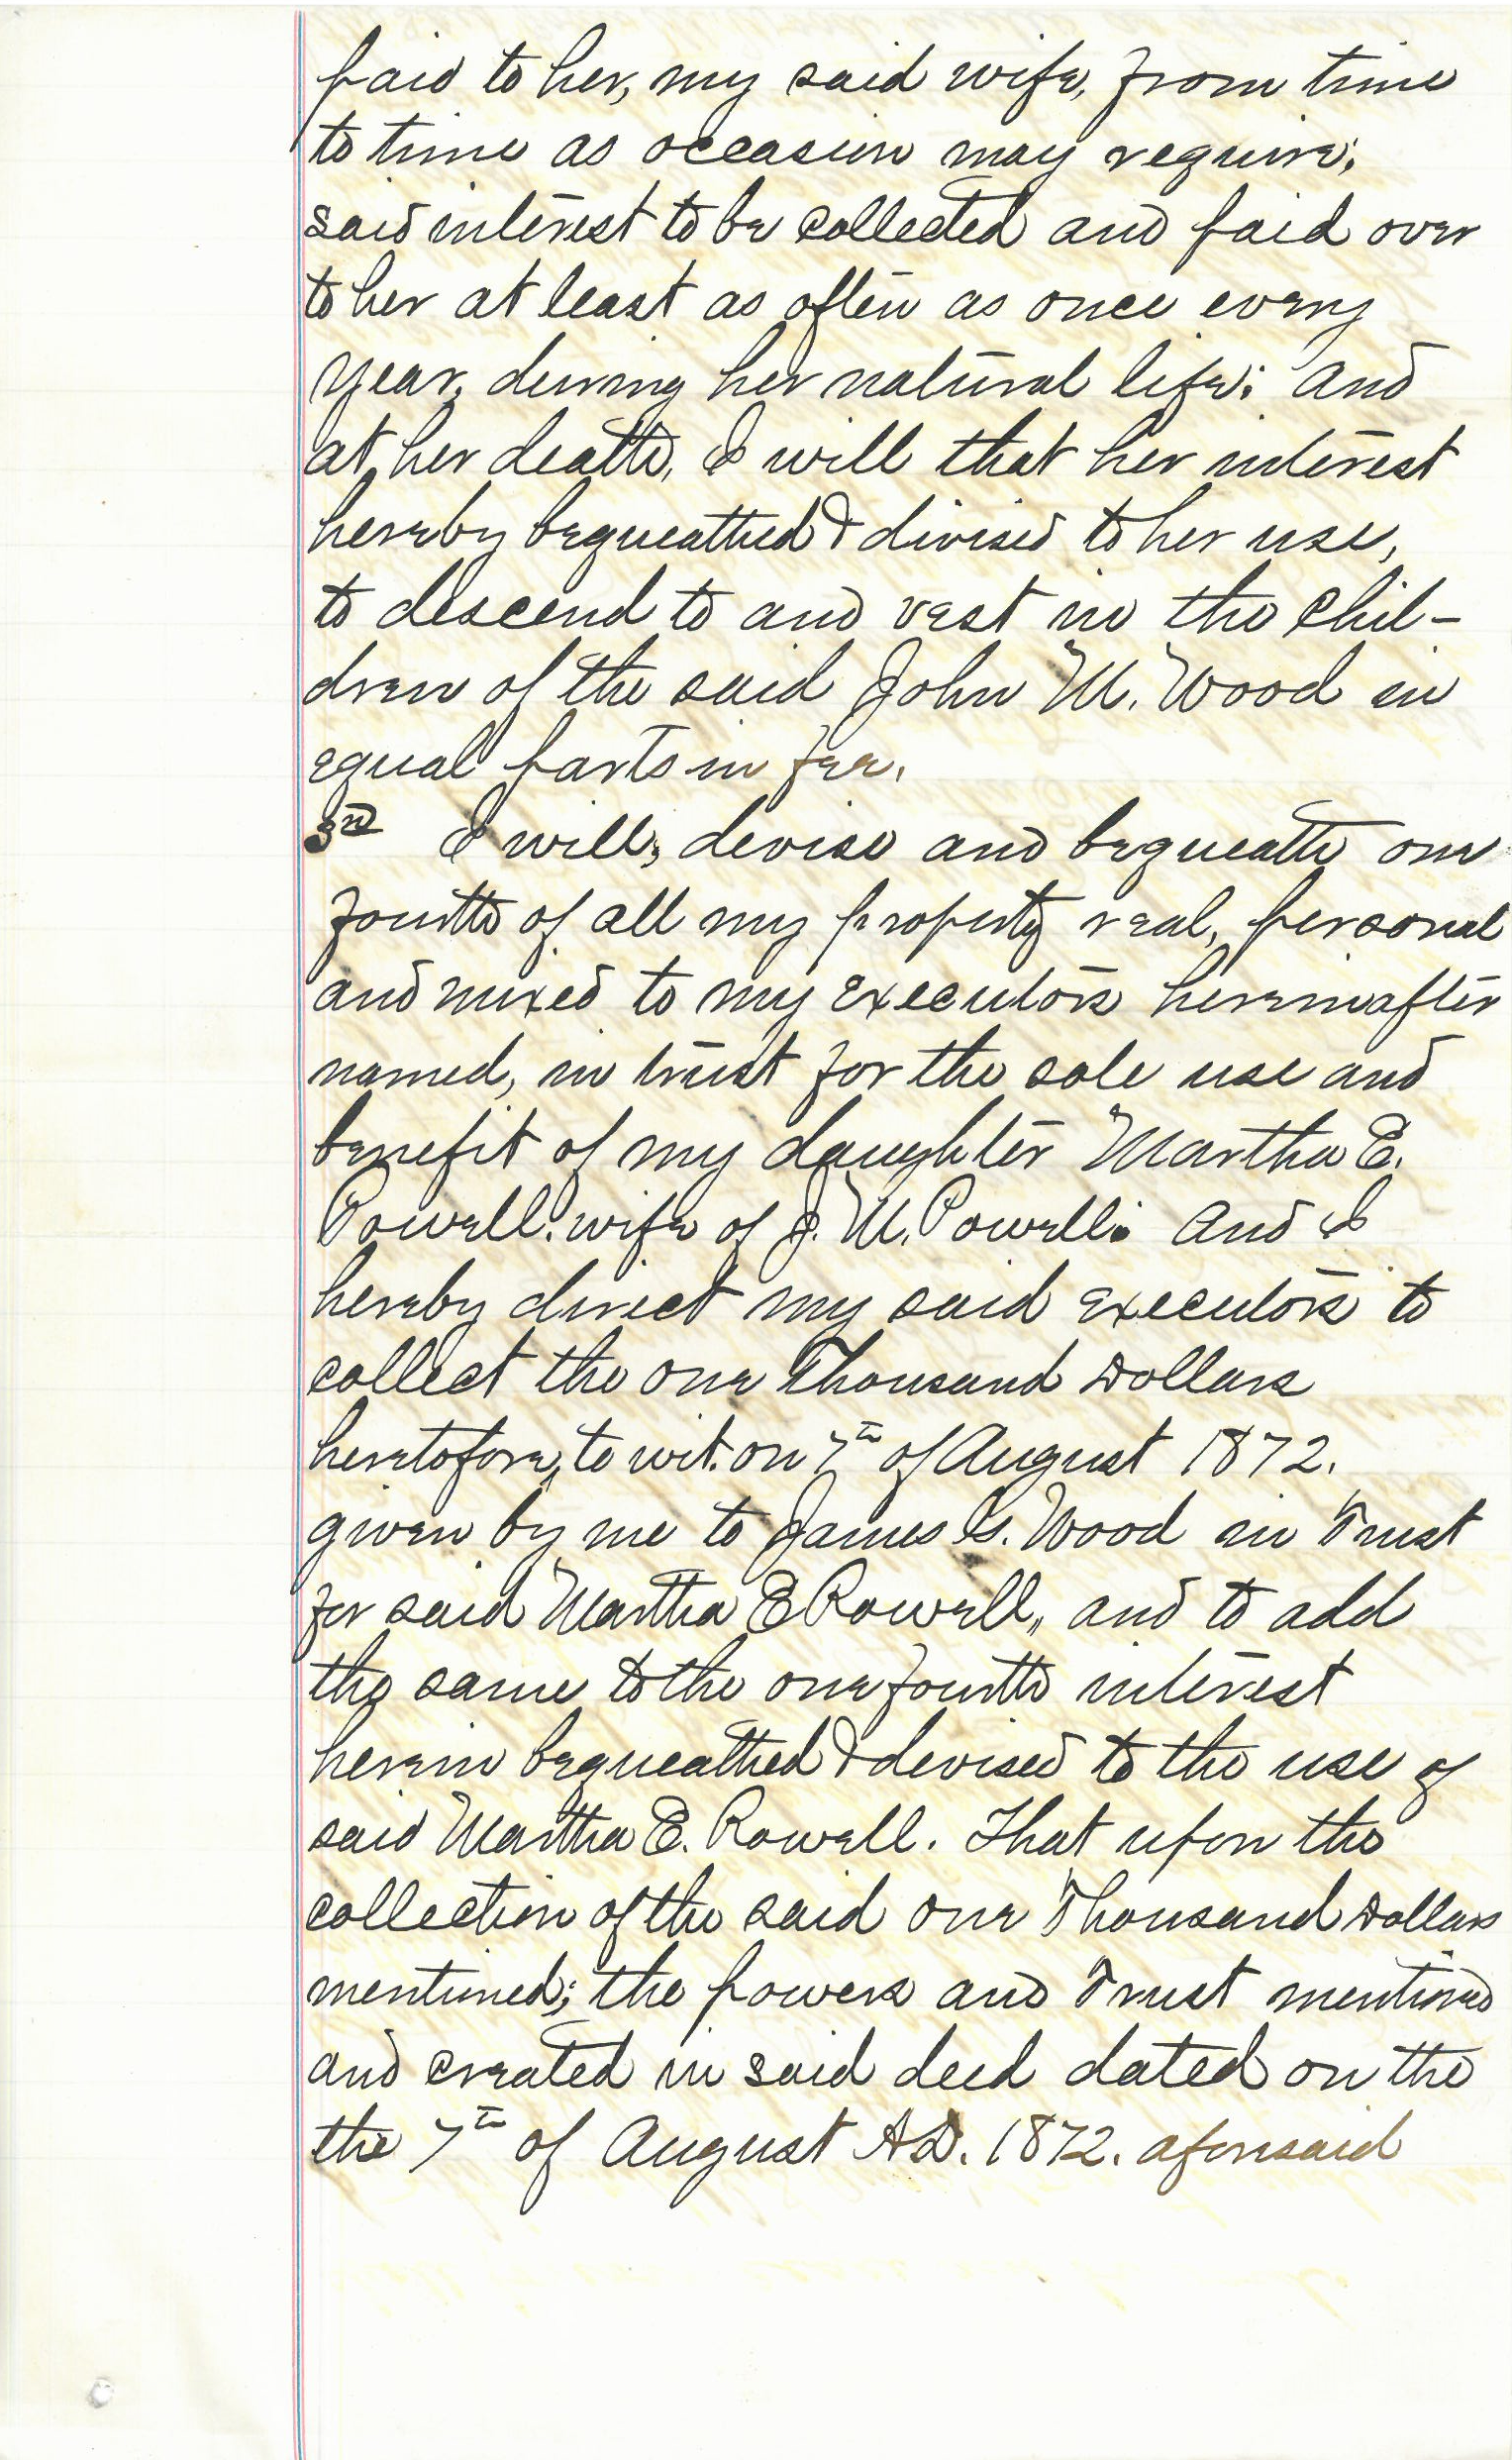 paid to her, my said wife, from time
to time as occasion may require;
said interest to be collected and paid over
to her at least as often as once every
year, during her natural life; and
at her death, I will that her interest
hereby bequeathed & divised to her use,
to descend to and vest in the chil-
dren of the said John M. Wood in
equal parts in fee.
3rd I will, devise and bequeath one
fourth of all my property real, personal
and mixed to my executors hereinafter
named, in trust for the sole use and
benefit of my daughter Martha E.
Powell, wife of J. M. Powell; and I
hereby direct my said executors to
collect the one Thousand Dollars
heretofore, to wit. on 7th of August 1872.
given by me to James G. Wood in Trust
for said Martha E Rowell, and to add
the same to the one fourth interest
herein bequeathed & devised to the use of
said Martha E. Rowell. That upon the
collection of the said one Thousand Dollars
mentioned; the powers and Trust mentioned
and created in said deed dated on the
the 7th of August A.D. 1872. aforesaid